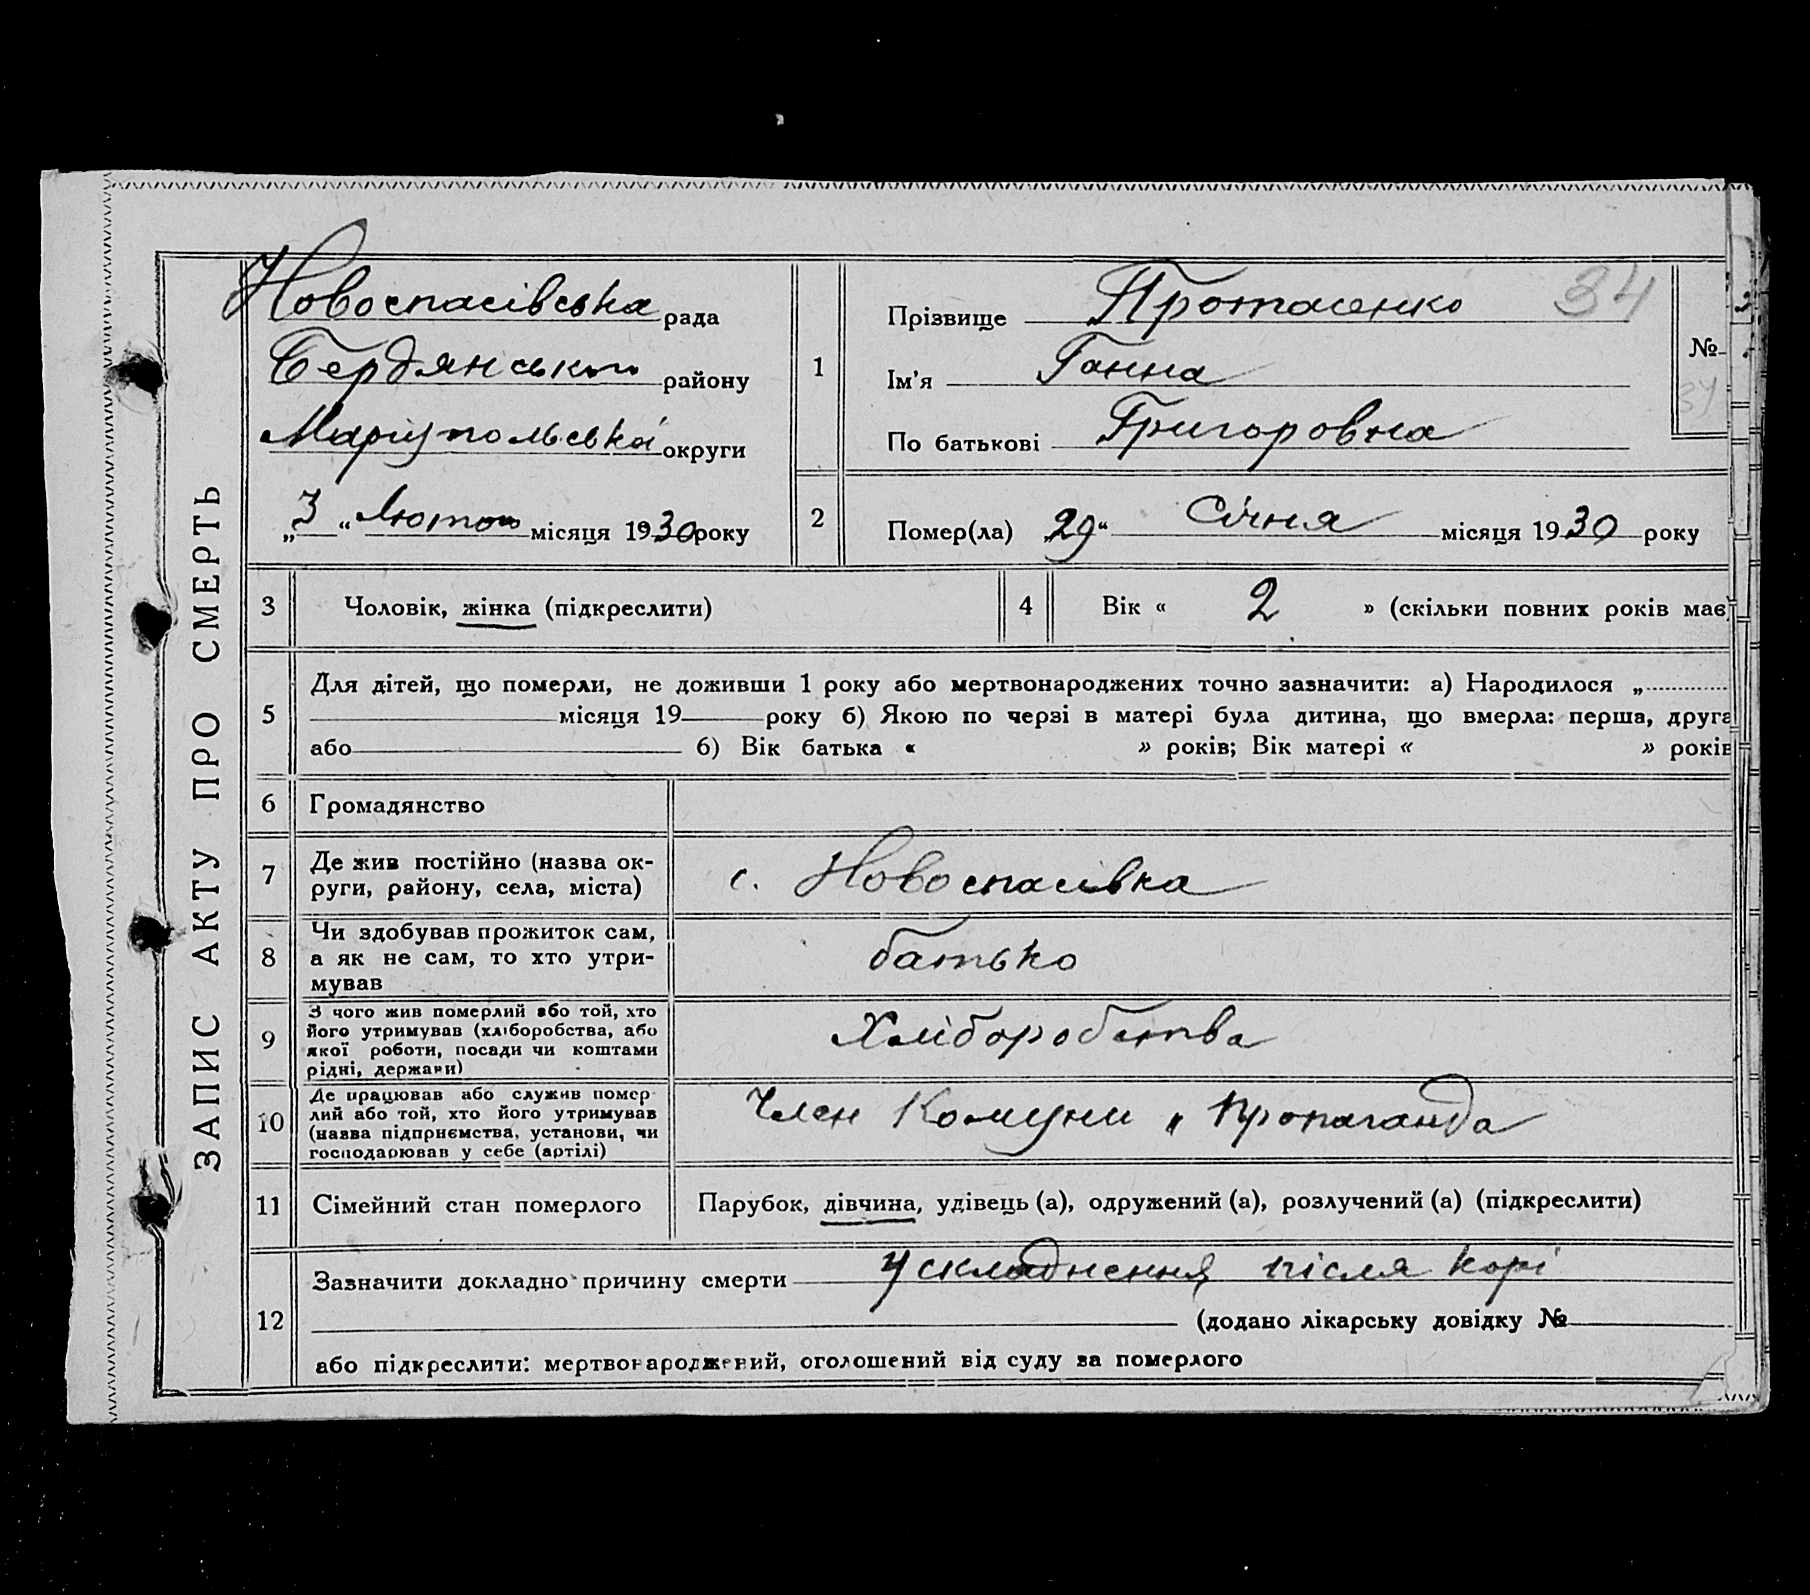 ЗАПИС АКТУ ПРО СМЕРТЬ
Новоспасівська рада
Бердянського району
Маріупольської округи
„3“ Лютого місяця 1930 року
1
Прізвище Протасенко 34
Ім'я Ганна
По батькові Григоровна
№
34
2
Помер(ла) „29“ Січня місяця 1930 року
3 Чоловік, жінка (підкреслити)
4 Вік « 2 » (скільки повних років має)
5 Для дітей, що померли, не доживши 1 року або мертвонароджених точно зазначити: а) Народилося „
місяця 19 року б) Якою по черзі в матері була дитина, що вмерла: перша, друга
або б) Вік батька « » років; Вік матері « » років
6 Громадянство
7 Де жив постійно (назва ок-
руги, району, села, міста)
с. Новоспасівка
8 Чи здобував прожиток сам,
а як не сам, то хто утри-
мував
батько
9 З чого жив померлий або той, хто
його утримував (хліборобства, або
якої роботи, посади чи коштами
рідні, держави)
Хліборобства
10 Де працював або служив помер-
лий або той, хто його утримував
(назва підприємства, установи, чи
господарював у себе (артілі)
Член Комуни „Пропаганда
11 Сімейний стан померлого
Парубок, дівчина, удівець (а), одружений (а), розлучений (а) (підкреслити)
12 Зазначити докладно причину смерти Ускладнення після корі
(додано лікарську довідку №
або підкреслити: мертвонароджений, оголошений від суду за померлого